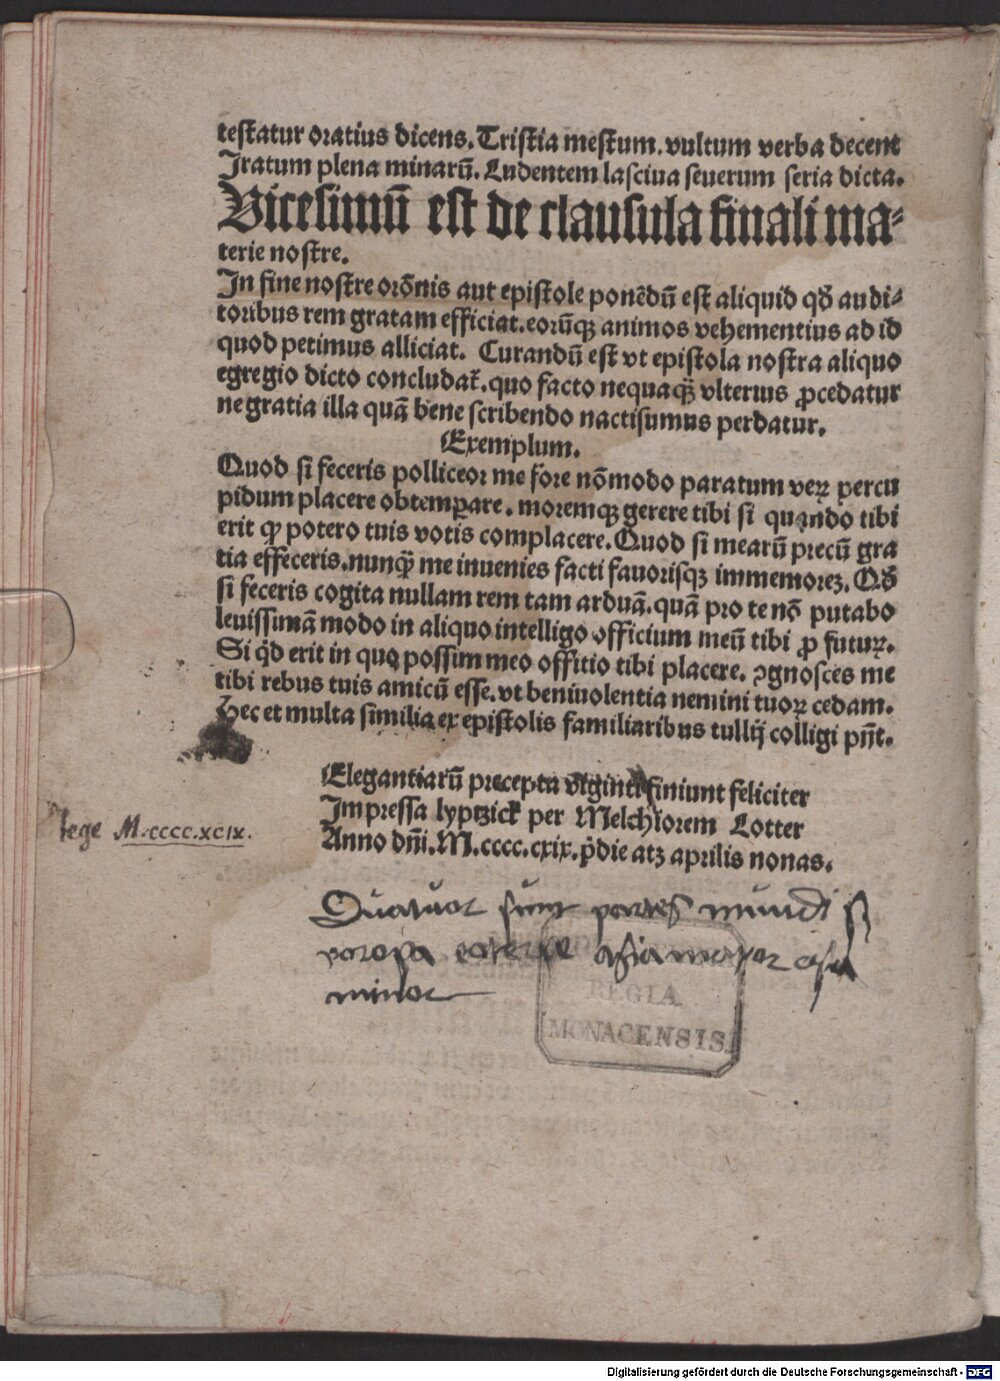 testatur oratius dicens. Tristia mestum. vultum verba decent
Iratum plena minarū. Ludentem lasciua seuerum seria dicta.
Vicesimū est de clausula finali ma⸗
terie nostre.
In fine nostre orōnis aut epistole ponēdū est aliquid qđ audi⸗
toribus rem gratam efficiat. eorūqꝫ animos vehementius ad id
quod petimus alliciat. Curandū est vt epistola nostra aliquo
egregio dicto concludat̄. quo facto nequaqꝫ̄ vlterius ꝓcedatur
ne gratia illa quā bene scribendo nactisumus perdatur.
Exemplum.
Quod si feceris polliceor me fore nōmodo paratum veꝝ ꝑcu
pidum placere obtemꝑare. moremqꝫ gerere tibi si quando tibi
erit qͦ potero tuis votis complacere. Quod si mearū precū gra
tia effeceris. nunqͣꝫ me inuenies facti fauorisqꝫ immemoreꝫ. Qđ
si feceris cogita nullam rem tam arduā. quā pro te nō putabo
leuissimā modo in aliquo intelligo officium meū tibi ꝓ futuꝝ.
Si qͥd erit in quo possim meo offitio tibi placere. ꝯgnosces me
tibi rebus tuis amicū esse. vt beniuolentia nemini tuoꝝ cedam.
Hec et multa similia ex epistolis familiaribus tullij colligi pn̄t.
Elegantiarū precepta viginti finiunt feliciter
Impressa lyptzick per Melchiorem Lotter
Anno dn̄i. M.cccc.cxix. p̄die atꝫ aprilis nonas.
lege M.cccc.xcix.
Quatuor sunt partes mundi
asia maior asia
minor
REGIA
MONACENSIS.
Digitalisierung gefördert durch die Deutsche Forschungsgemeinschaft - DFG